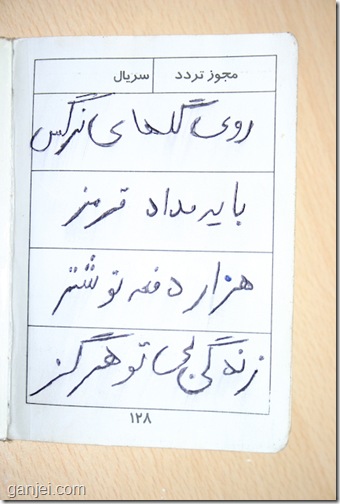 مجوز تردد	سریال
روی گلهای نرگس
با یه مداد قرمز
هزار دفعه نوشتم
زندگی بی تو هرگز
۱۲۸
ganjei.com